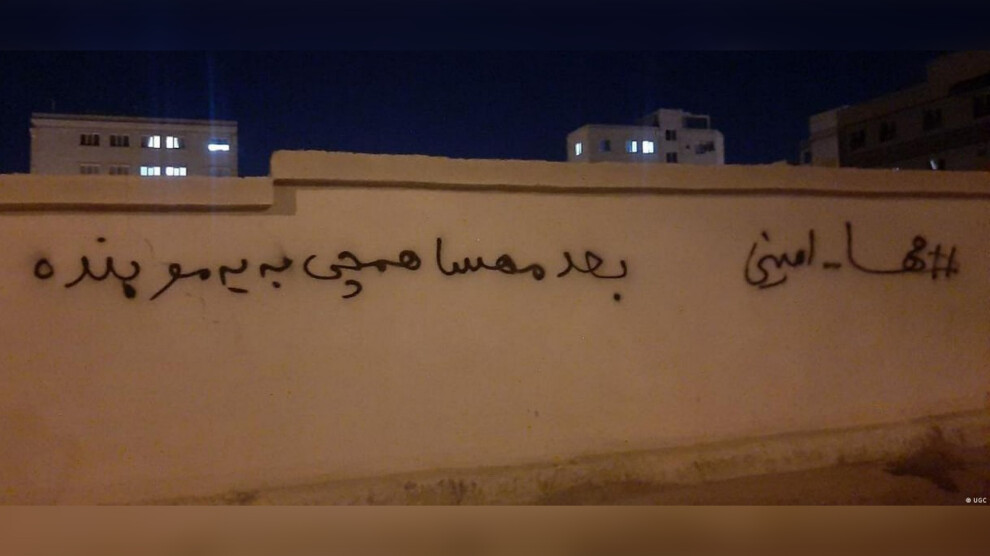 #مهسا_امینی بعد مهسا همچی به یه مو بنده
© UGC